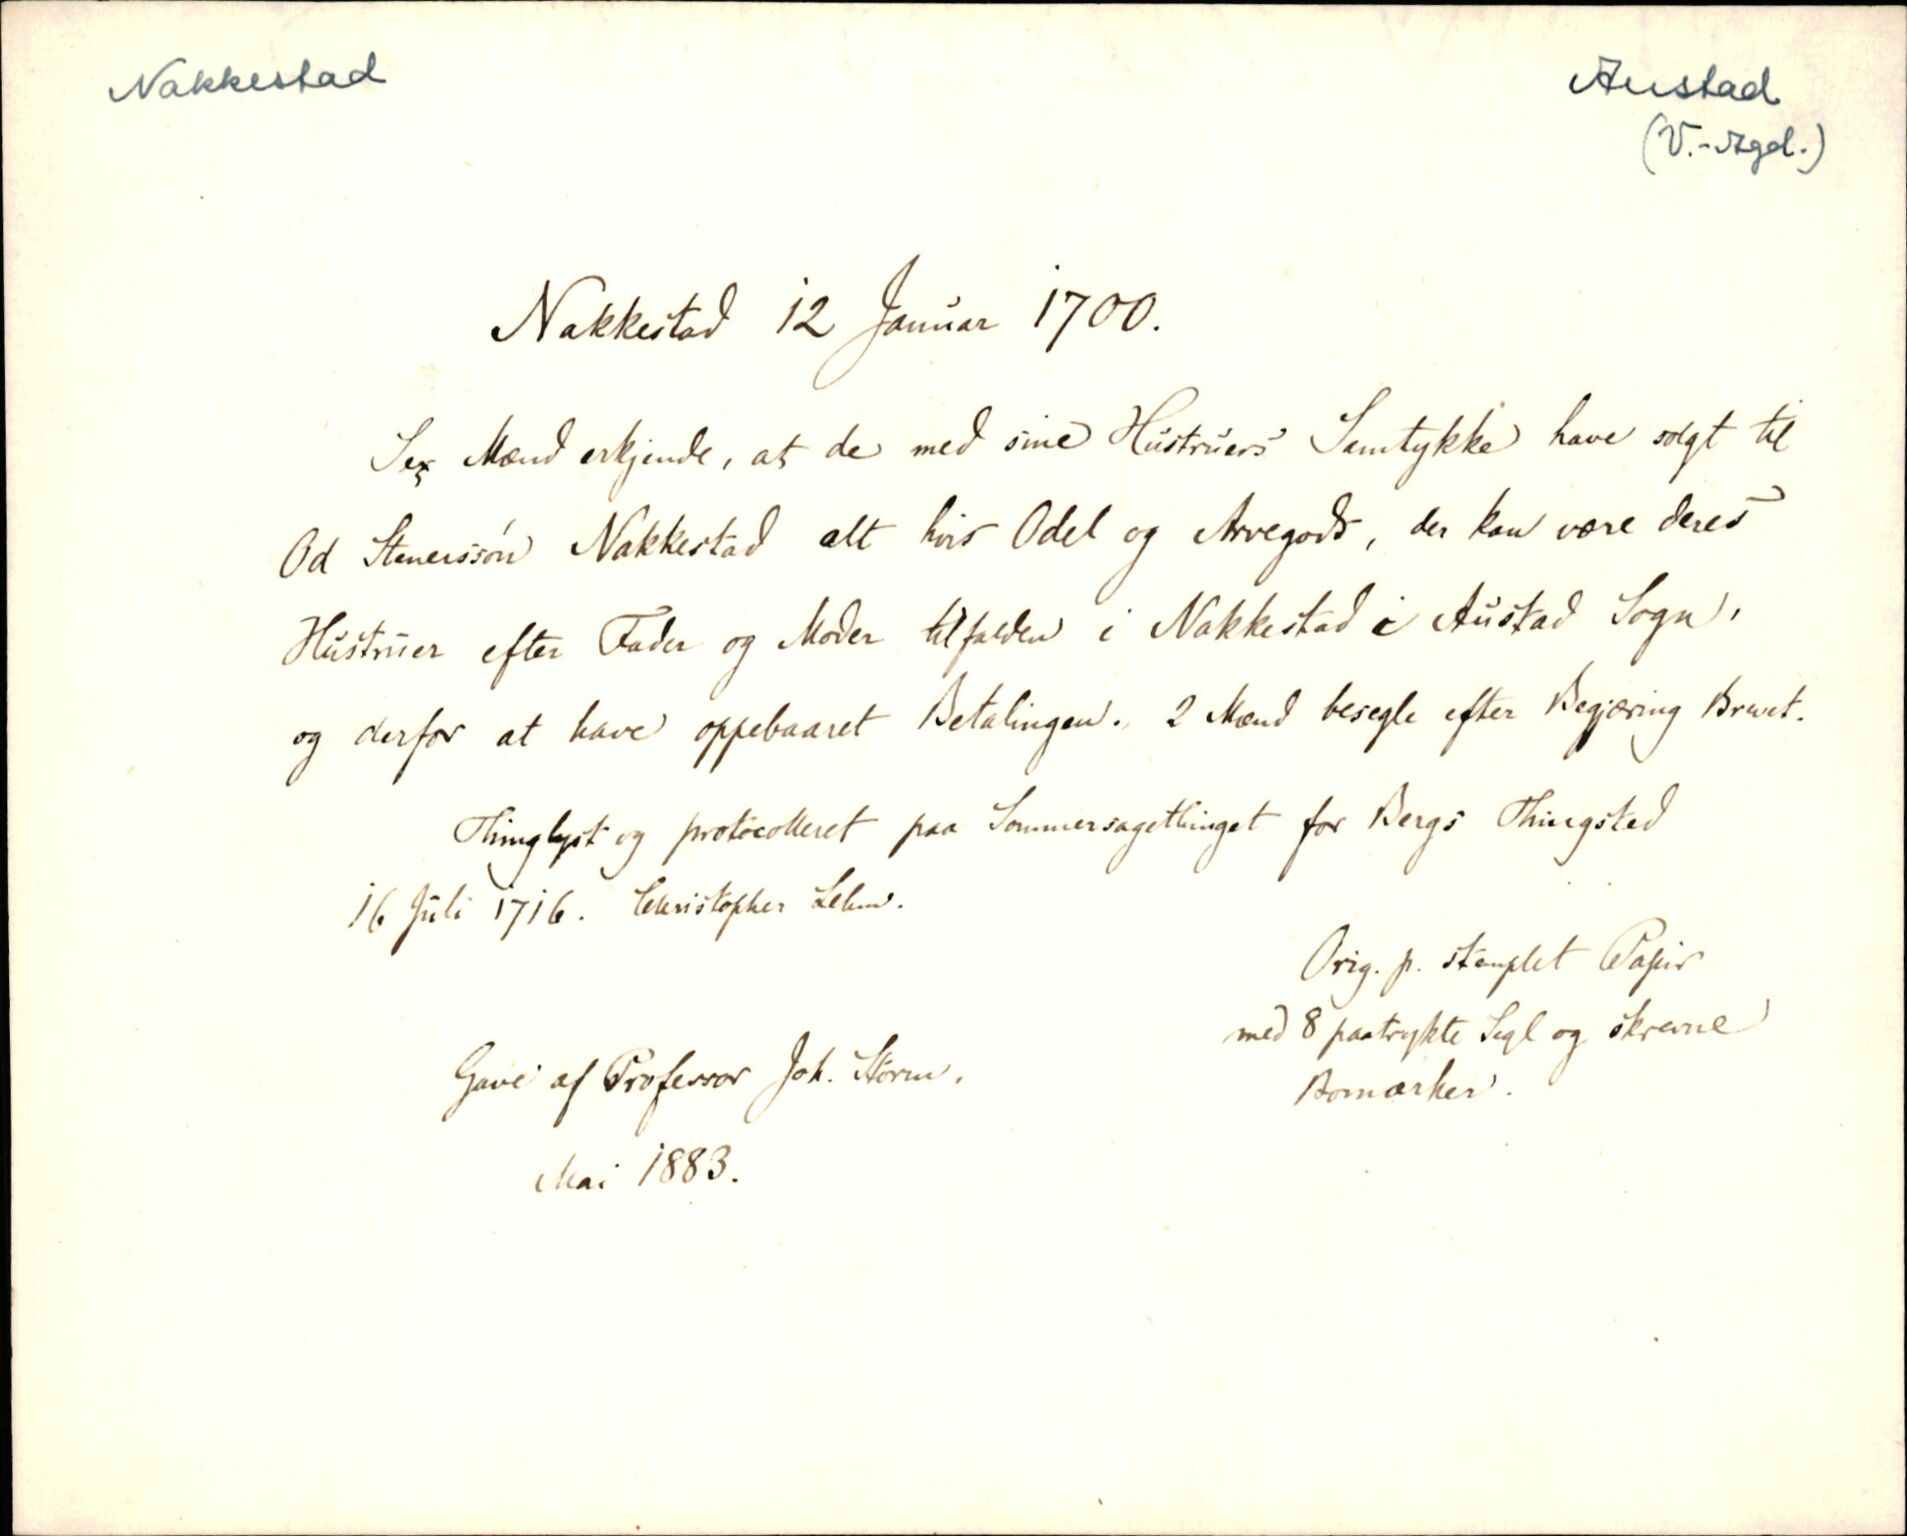 Nakkestad
Austad
(V.-Agd.)
Nakkestad 12 Januar 1700.
Sex Mænd erkjende, at de med sine Hustruers Samtykke have solgt til
Od Stenerssøn Nakkestad alt hvis Odel og Arvegods, der kan være deres
Hustruer efter Fader og Moder tilfalden i Nakkestad i Austad Sogn,
og derfor at have oppebaaret Betalingen. 2 Mænd besegle efter Begjæring Brevet.
Thinglyst og protocolleret paa Sommersagethinget for Bergs Thingsted
16 Juli 1716. Christopher Lehm.
Orig. p. stemplet Papir
med 8 paatrykte Segl og skrevne
Bomærker.
Gave af Professor Joh. Storm.
Mai 1883.